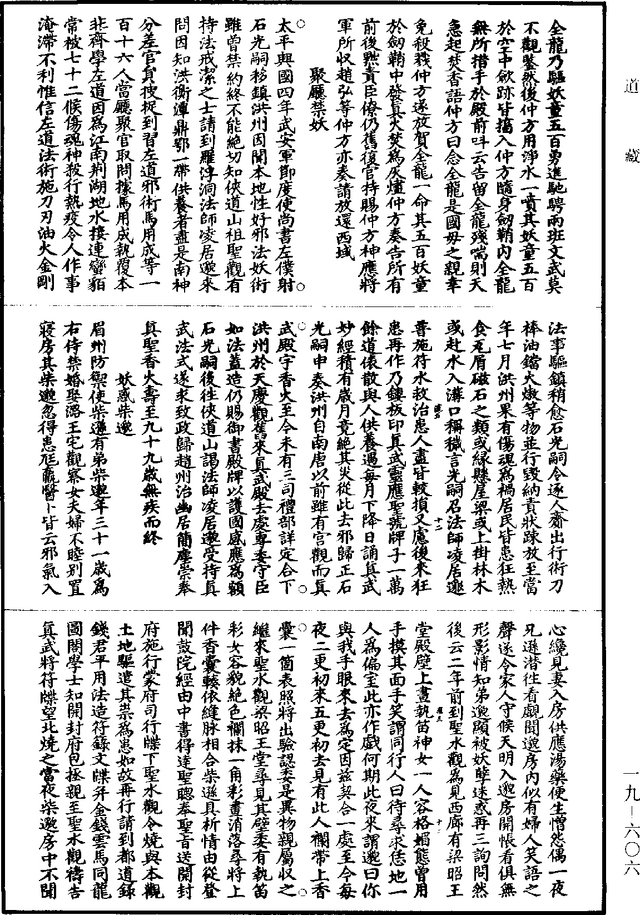 道藏
全龍乃驅妖童五百勇進馳騁兩班文武莫
不觀鑒然後仲方用淨水一噴其妖童五百
於空中歛跡皆搊入仲方隨身劒鞘内全龍
無所措手於殿前呌云告留全龍殘喘則天
急起焚香語仲方曰念全龍是國毋之親幸
免殺戮仲方遂放貸全龍一命其五百妖童
於劒鞘中發真火焚為灰燼仲方奏告所有
前後黜責臣僚仍舊復官特賜仲方神應將
軍所収趙弘等仲方亦奏請放還西域
聚廳禁妖
太平興國四年武安軍節度使尚書左僕射
石光嗣移鎮洪州因聞本地性好邪法妖術
雖曾禁約終不能絶切知俠道山祖聖觀有
持法戒潔之士請到羅浮洞法師凌居邈來
問因知洪衡潭鼎鄂一帶供養者盡是南神
分差官負搜捉到習左道邪術馬用成等一
百十六人當廳聚官取問據馬用成執覆本
非齊學左道因為江南荆湖地水接連蠻貊
常被七十二候傷魂神殺行熱疫令人作事
淹滯不利惟信左道法術施刀刃油火金剛
法事驅鎮稍愈石光嗣令逐人齋出行術刀
棒油鐺火燉等物並行毀納責狀踈放至當
年七月洪州果有傷魂為禍居民皆患狂熱
食瓦屑磁石之類或緣懸屋梁或上掛林木
或赴水入溝口稱穢言光嗣召法師凌居邈
書施符水救治患人盡皆較損又慮後來狂
患再作乃鏤板印真武靈應聖號牌子一萬
餘道俵散與人供養遇每月下降日誦真武
妙經積有歲月竟絶其災從此去邪歸正石
光嗣申奏洪州自南唐以前雖有宫觀而真
武殿宇香火至今未有三司禮部詳定合下
洪州於天慶觀舊來真武殿去處專委守臣
如法蓋造仍賜御書殿牌以護國感應為額
石光嗣後往俠道山謁法師凌居邈受持真
武法式遂求致政歸趙州治幽居簡靡崇奉
真聖香火壽至九十九歲無疾而終
妖惑柴邈
眉州防禦使柴遜有弟柴邈年三十一歲為
右侍禁婚娶潞王宅觀察女夫婦不睦別置
寢房其柴邈忽得患尫羸醫卜皆云邪氣入
心纔見妻入房供應湯藥便生憎怒偶一夜
兄遜潜往看覰聞邈房内似有婦人笑語之
聲遂令家人守候天明入邈房開帳看俱無
形影情知弟邈顯被妖孽迷惑再三詢問然
後云二年前到聖水觀為見西廊有梁昭王
堂殿壁上畫執笛神女一人容格媚態曾用
手摸其面手笑謂同行人曰待尋求恁地一
人為偏室此亦作戯何期此夜來謂邈曰你
與我手眼來去為定因兹契合一處至今每
夜二更初來五更初去見有此人襴帶上香
囊一箇表照將出驗認委是異物親屬収之
繼來聖水觀梁昭王堂尋見其壁委有執笛
彩女容貌絶色襴抹一角彩畫消落尋將上
件香囊輳依縫脉相合柴遜具析情由從登
聞鼓院經由中書得達聖聰奉聖音送開封
府施行蒙府司行牒下聖水觀令焼與本觀
土地驅遣其祟為患如故再行請到都道録
錢君平用法造符籙文牒并金錢雲馬同龍
圖閣學士知開封府包拯親至聖水觀禱告
真武將符牒望北焼之當夜柴邈房中不聞
一九-六〇六